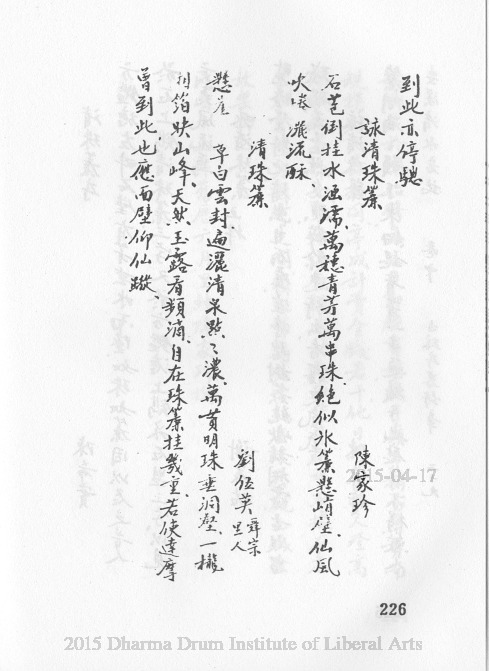 到此亦停驄
詠清珠簾
陳家珍
石苞倒挂水涵濡、萬穗青芳萬串珠、絕似冰簾懸峭壁、仙風
吹捲灑流酥、
清珠簾
劉伍英 舜宗
旦人
懸崖 草白雲封、遍灑清泉點々濃、萬貫明珠垂洞壑、一櫳
湘箔映山峰、天然玉露看頻滴、自在珠簾挂幾重、若使達摩
曾到此、也應面壁仰仙蹤、
2015-04-17
226
2015 Dharma Drum Institute of Liberal Arts